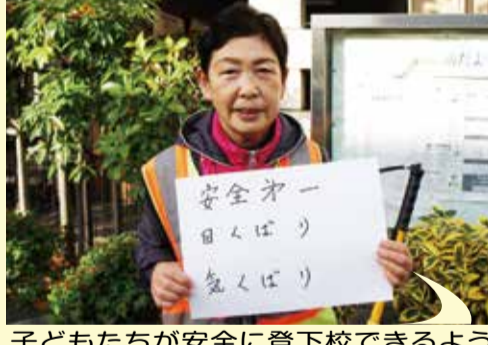 安全才一
目くばり
気くばり
子どもたちが安全に登下校できるよう